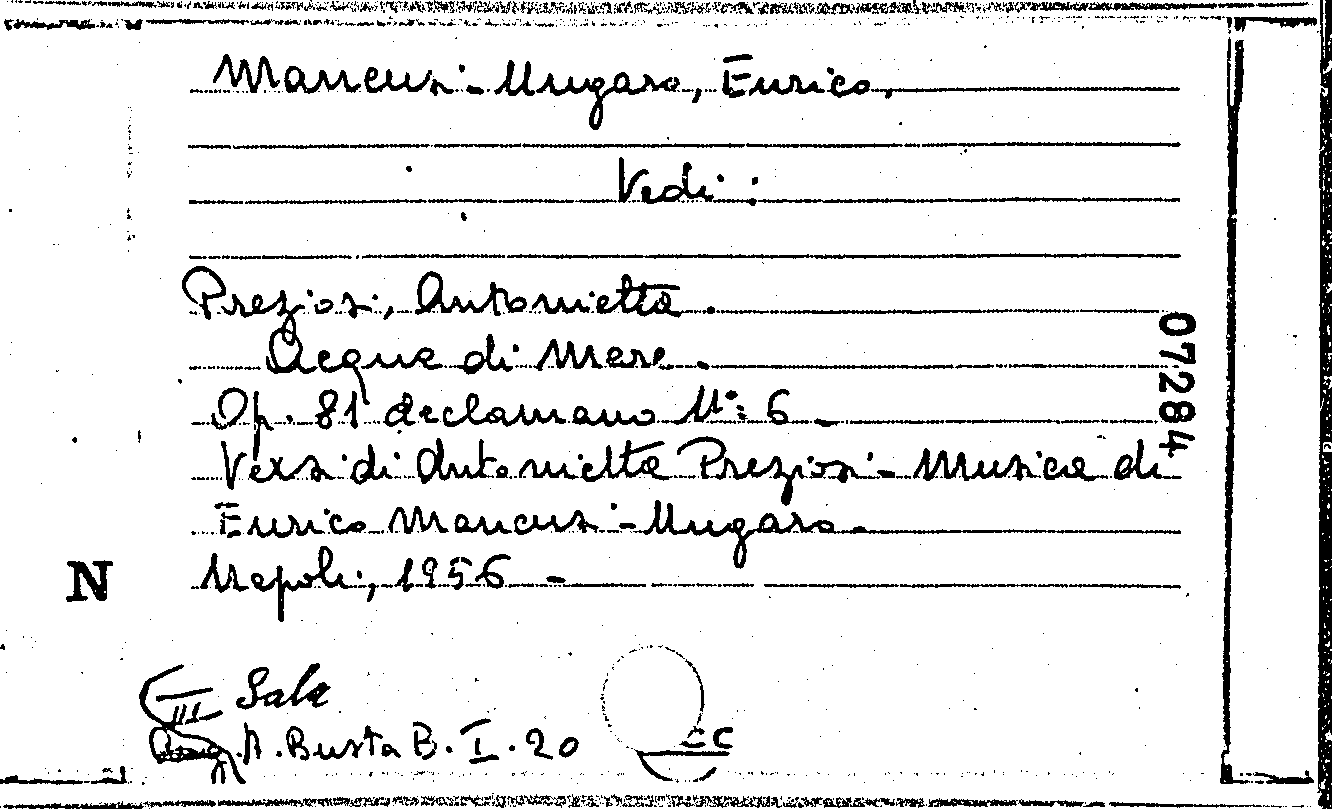 Mancusi-Ungaro, Enrico.
Vedi:
Preziosi, Antonietta.
Acqua di Mare.
Op. 81 declamano N°: 6 -
Versi di Antonietta Preziosi - Musica di
Enrico Mancusi-Ungaro -
Napoli, 1956 -
07284
N
III Sala
A. Busta B. I. 20
CC